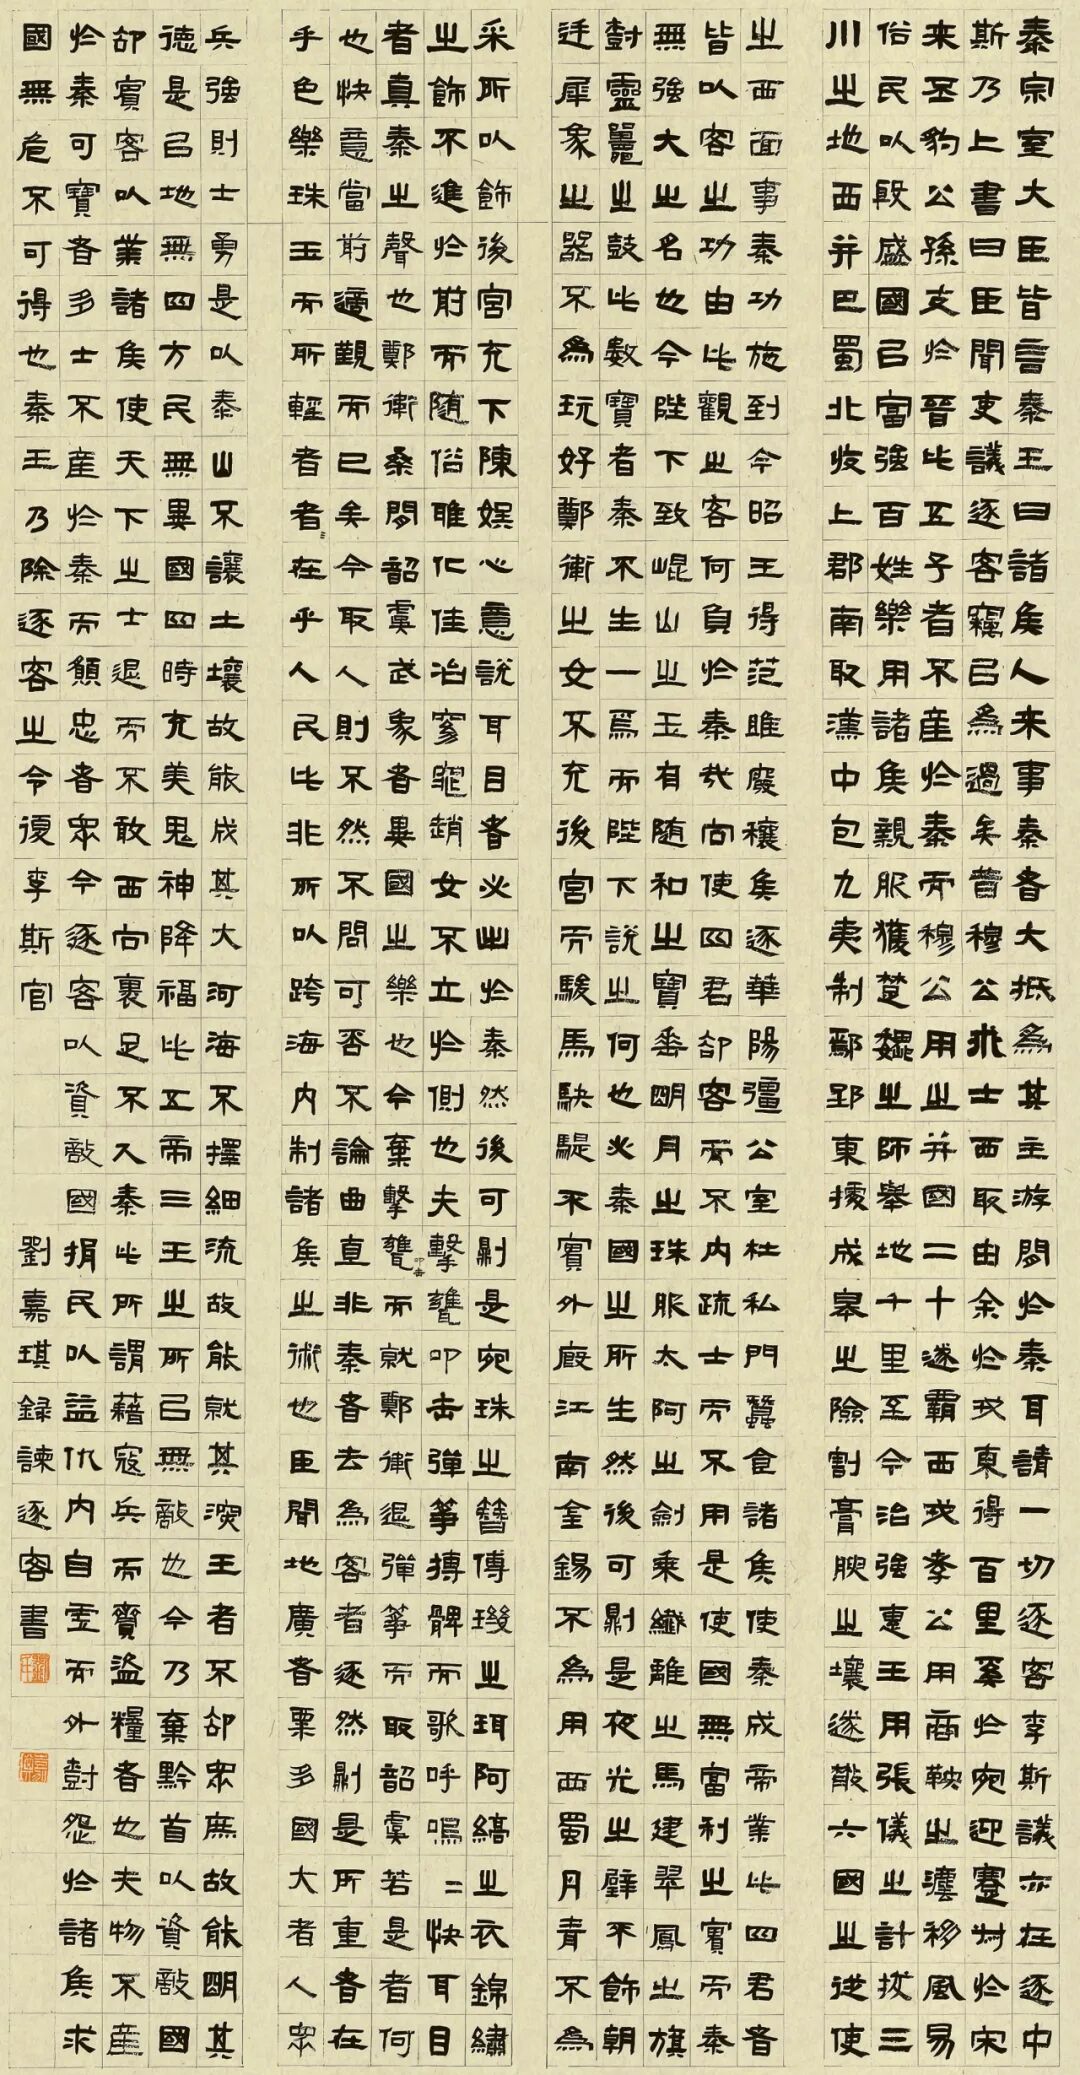 秦宗室大臣皆言秦王曰諸侯人来事秦者大抵為其主游間於秦耳請一切逐客李斯議亦在逐中
斯乃上書曰臣聞吏議逐客竊以為過矣昔穆公求士西取由余於戎東得百里奚於宛迎蹇叔於宋
来丕豹公孫支於晉此五子者不產於秦而穆公用之并國二十遂霸西戎孝公用商鞅之灋移風易
俗民以殷盛國以富強百姓樂用諸侯親服獲楚魏之師舉地千里至今治強惠王用張儀之計拔三
川之地西并巴蜀北收上郡南取漢中包九夷制鄢郢東據成皋之險割膏腴之壤遂散六國之從使
之西面事秦功施到今昭王得范雎廢穰侯逐華陽彊公室杜私門蠶食諸侯使秦成帝業此四君者
皆以客之功由此觀之客何負於秦哉向使四君卻客而不內疏士而不用是使國無富利之實而秦
無強大之名也今陛下致崐山之玉有随和之寶垂明月之珠服太阿之劍乘纖離之馬建翠鳳之旗
尌靈鼉之鼓此數寶者秦不生一焉而陛下說之何也必秦國之所生然後可則是夜光之璧不飾朝
廷犀象之器不為玩好鄭衛之女不充後宮而駿馬駃騠不實外廄江南金錫不為用西蜀丹青不為
采所以飾後宮充下陳娛心意說耳目者必出於秦然後可則是宛珠之簪傅璣之珥阿縞之衣錦繡
之飾不進於前而随俗雅化佳冶窈窕趙女不立於側也夫擊甕叩缶彈箏搏髀而歌呼嗚=快耳目
者真秦之聲也鄭衛桑間韶虞武象者異國之樂也今棄擊甕叩缶而就鄭衛退彈箏而取韶虞若是者何
也快意當前適觀而已矣今取人則不然不問可否不論曲直非秦者去為客者逐然則是所重者在
乎色樂珠玉而所輕者者在乎人民此非所以跨海內制諸侯之術也臣聞地廣者粟多國大者人眾
兵強則士勇是以泰山不讓土壤故能成其大河海不擇細流故能就其深王者不卻眾庶故能明其
德是以地無四方民無異國四時充美鬼神降福此五帝三王之所以無敵也今乃棄黔首以資敵國
卻賓客以業諸侯使天下之士退而不敢西向裹足不入秦此所謂藉寇兵而齎盜糧者也夫物不產
於秦可寶者多士不產於秦而願忠者眾今逐客以資敵國捐民以益仇內自虛而外尌怨於諸侯求
國無危不可得也秦王乃除逐客之令復李斯官
劉嘉琪録諫逐客書